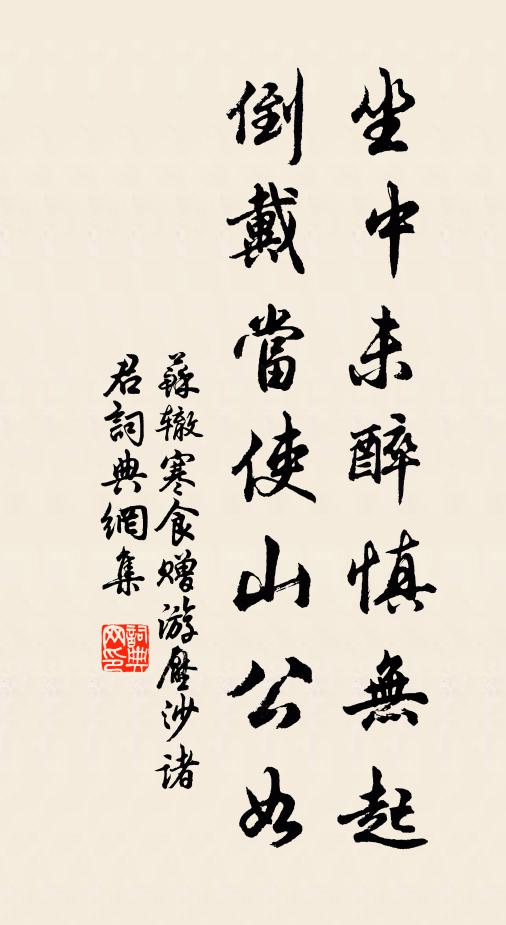 坐中未醉慎無起
倒戴當使山公如
蘇辙寒食赠游壓沙诸
君詞典網集
詞典网印